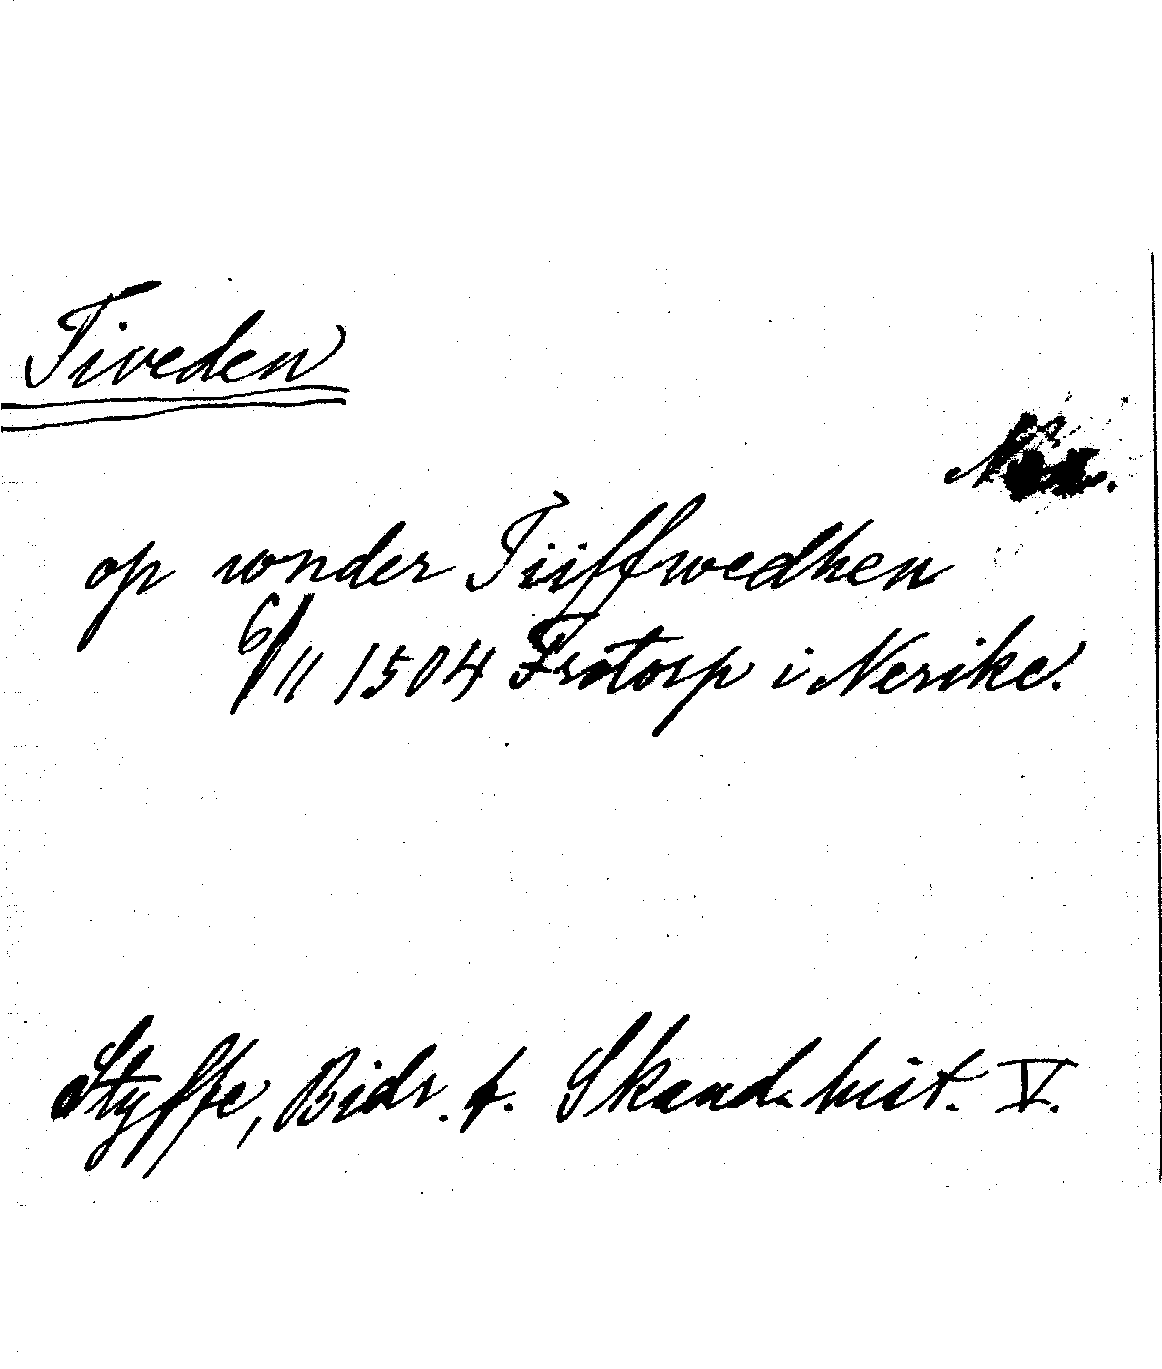 Tiveden
op wnder Tiiffwedhen
6/11 1504 Frötorp i Nerike.
Styffe, Bidr. t. Skand. hist. V.